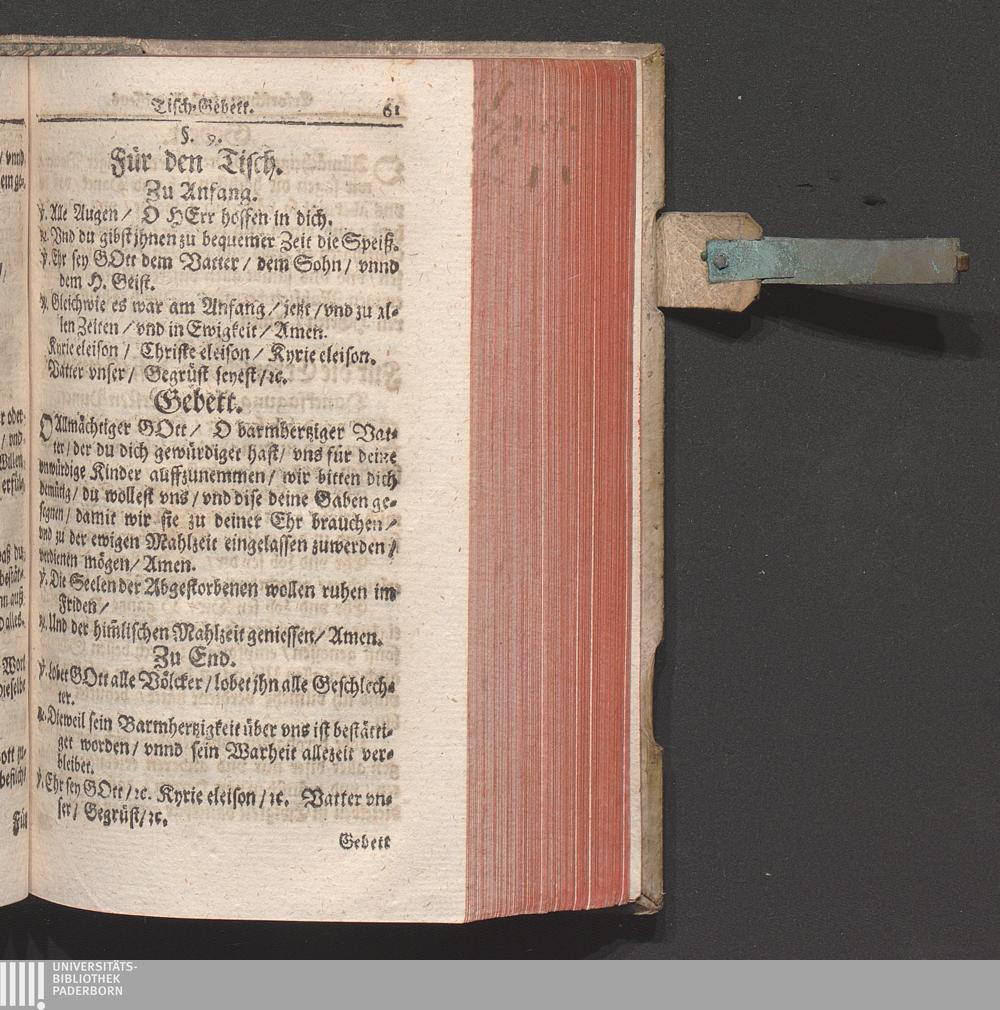 / vnnd
Tisch-Gebett. 61
§. 9.
Für den Tisch.
Zu Anfang.
℣. Alle Augen / O HErr hoffen in dich.
℟. Vnd du gibst jhnen zu bequemer Zeit die Speiß.
℣. Ehr sey GOtt dem Vatter / dem Sohn / vnnd
dem H. Geist.
℟. Gleichwie es war am Anfang / jetzt / vnd zu al-
len Zeiten / vnd in Ewigkeit / Amen.
Kyrie eleison / Christe eleison / Kyrie eleison.
Vatter vnser / Gegrüst seyest / ꝛc.
Gebett.
O Allmächtiger GOtt / O barmhertziger Vat-
ter / der du dich gewürdiget hast / vns für deine
vnwürdige Kinder auffzunemmen / wir bitten dich
demütig / du wollest vns / vnd dise deine Gaben ge-
segnen / damit wir sie zu deiner Ehr brauchen /
vnd zu der ewigen Mahlzeit eingelassen zuwerden /
verdienen mögen / Amen.
℣. Die Seelen der Abgestorbenen wollen ruhen im
Friden /
℟. Und der him̃lischen Mahlzeit geniessen / Amen.
Zu End.
℣. Lobet GOtt alle Völcker / lobet jhn alle Geschlech-
ter.
℟. Dieweil sein Barmhertzigkeit über vns ist bestätti-
get worden / vnnd sein Warheit allezeit ver-
bleibet.
℣. Ehr sey GOtt / ꝛc. Kyrie eleison / ꝛc. Vatter vn-
ser / Gegrüst / ꝛc.
Gebett
Für
UNIVERSITÄTS-
BIBLIOTHEK
PADERBORN